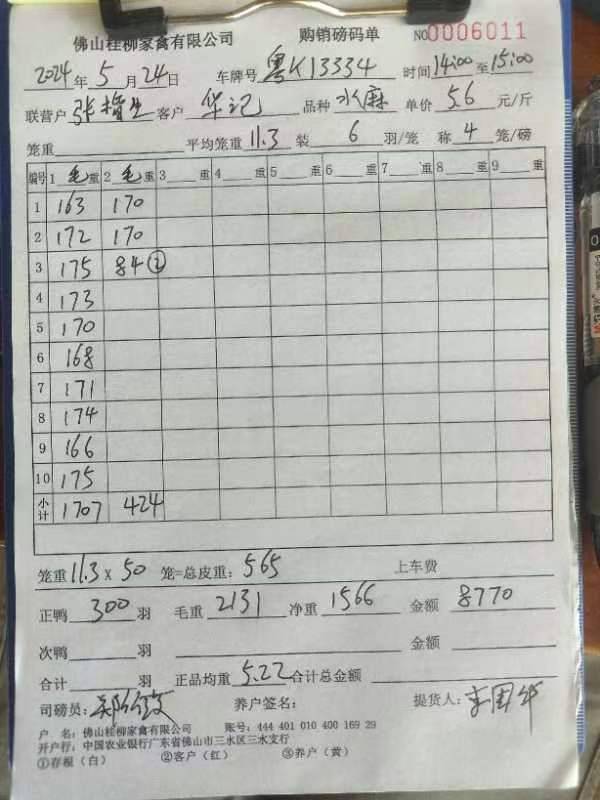 佛山桂柳家禽有限公司 购销磅码单 NO 0006011
2024年5月24日 车牌号 粤K13334 时间 14:00 至 15:00
联营户 客户 华记 品种 水麻 单价 5.6 元/斤
笼重 平均笼重 11.3 装 6 羽/笼 称 4 笼/磅
编号 1 毛重 2 毛重 3 重 4 重 5 重 6 重 7 重 8 重 9 重
1 163 170
2 172 170
3 175 84②
4 173
5 170
6 168
7 171
8 174
9 166
10 175
小计 1707 424
笼重 11.3 x 50 笼=总皮重: 565 上车费
正鸭 300 羽 毛重 2131 净重 1566 金额 8770
次鸭 羽 金额
合计 羽 正品均重 5.22 合计总金额
司磅员: 养户签名: 提货人: 李国华
户 名: 佛山桂柳家禽有限公司 账号: 444 401 010 400 169 29
开户行: 中国农业银行广东省佛山市三水区三水支行
①存根(白) ②客户(红) ③养户(黄)